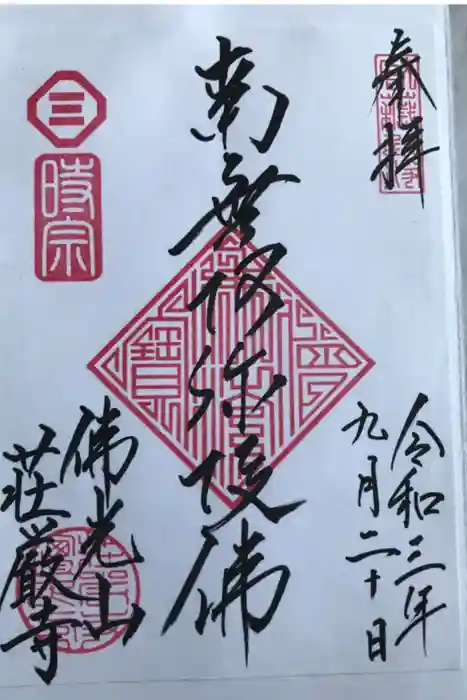 奉拝
令和三年
九月二十日
南無阿弥陀佛
三
時宗
佛光山
荘厳寺